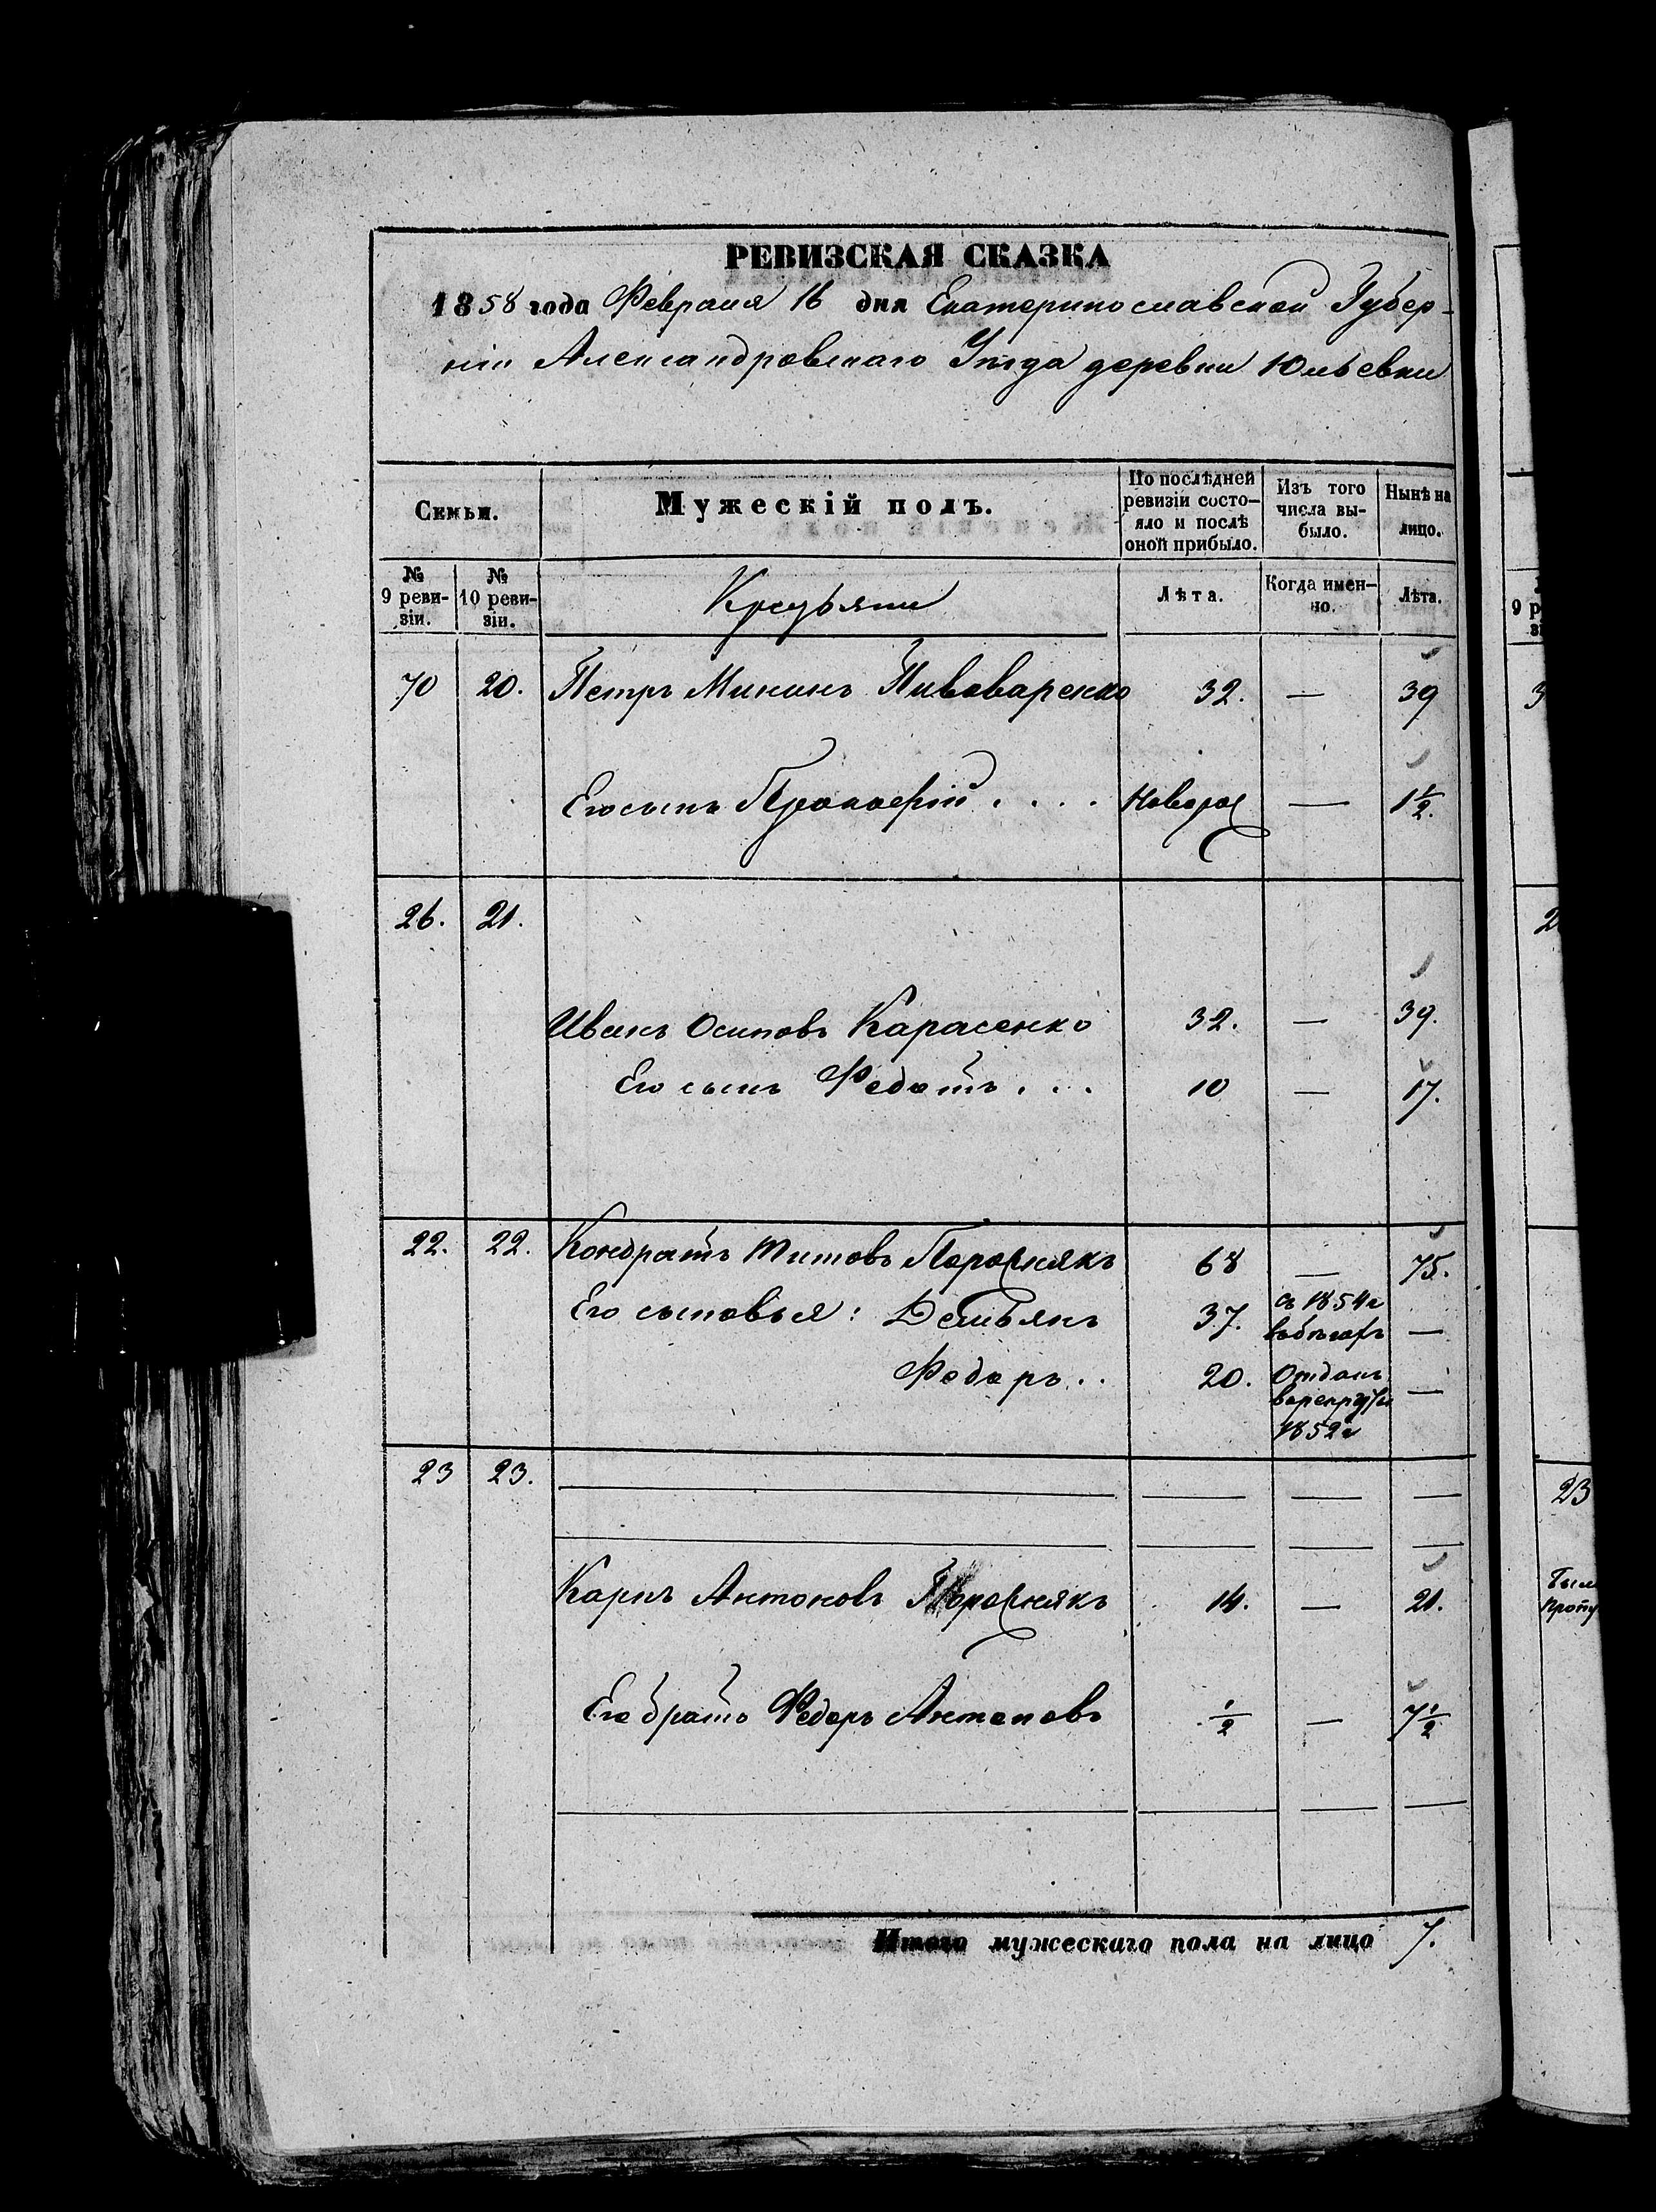 РЕВИЗСКАЯ СКАЗКА
1858 года Февраля 16 дня Екатеринославской Губер-
нiи Александровскаго Уѣзда деревни Юльевки
Семьи.
Мужескій полъ.
По послѣдней ревизіи состо-яло и послѣ оной прибыло.
Изъ того числа вы-было.
Нынѣ на лицо.
№ 9 реви-зіи.
№ 10 реви-зіи.
Крестьяни
Лѣта.
Когда имен-но.
Лѣта.
70 20. Петръ Мининъ Пивоваренко 32. — 39
Его сынъ Прокофій . . . . Новорож — 1½.
26. 21.
Иванъ Осиповъ Карасенко 32. — 39.
Его сынъ Федотъ . . . 10 — 17.
22. 22. Кондратъ Титовъ Порожнякъ 68 — 75.
Его сыновья: Демьянъ 37. съ 1854г въ бѣгахъ —
Федоръ . . 20. Отданъ в рекруты 1852г —
23 23.
Карпъ Антоновъ Порожнякъ 14. — 21.
Его братъ Федоръ Антоновъ ½ — 7½
Итого мужескаго пола на лицо 7.
9 р
23
Был
Пропу